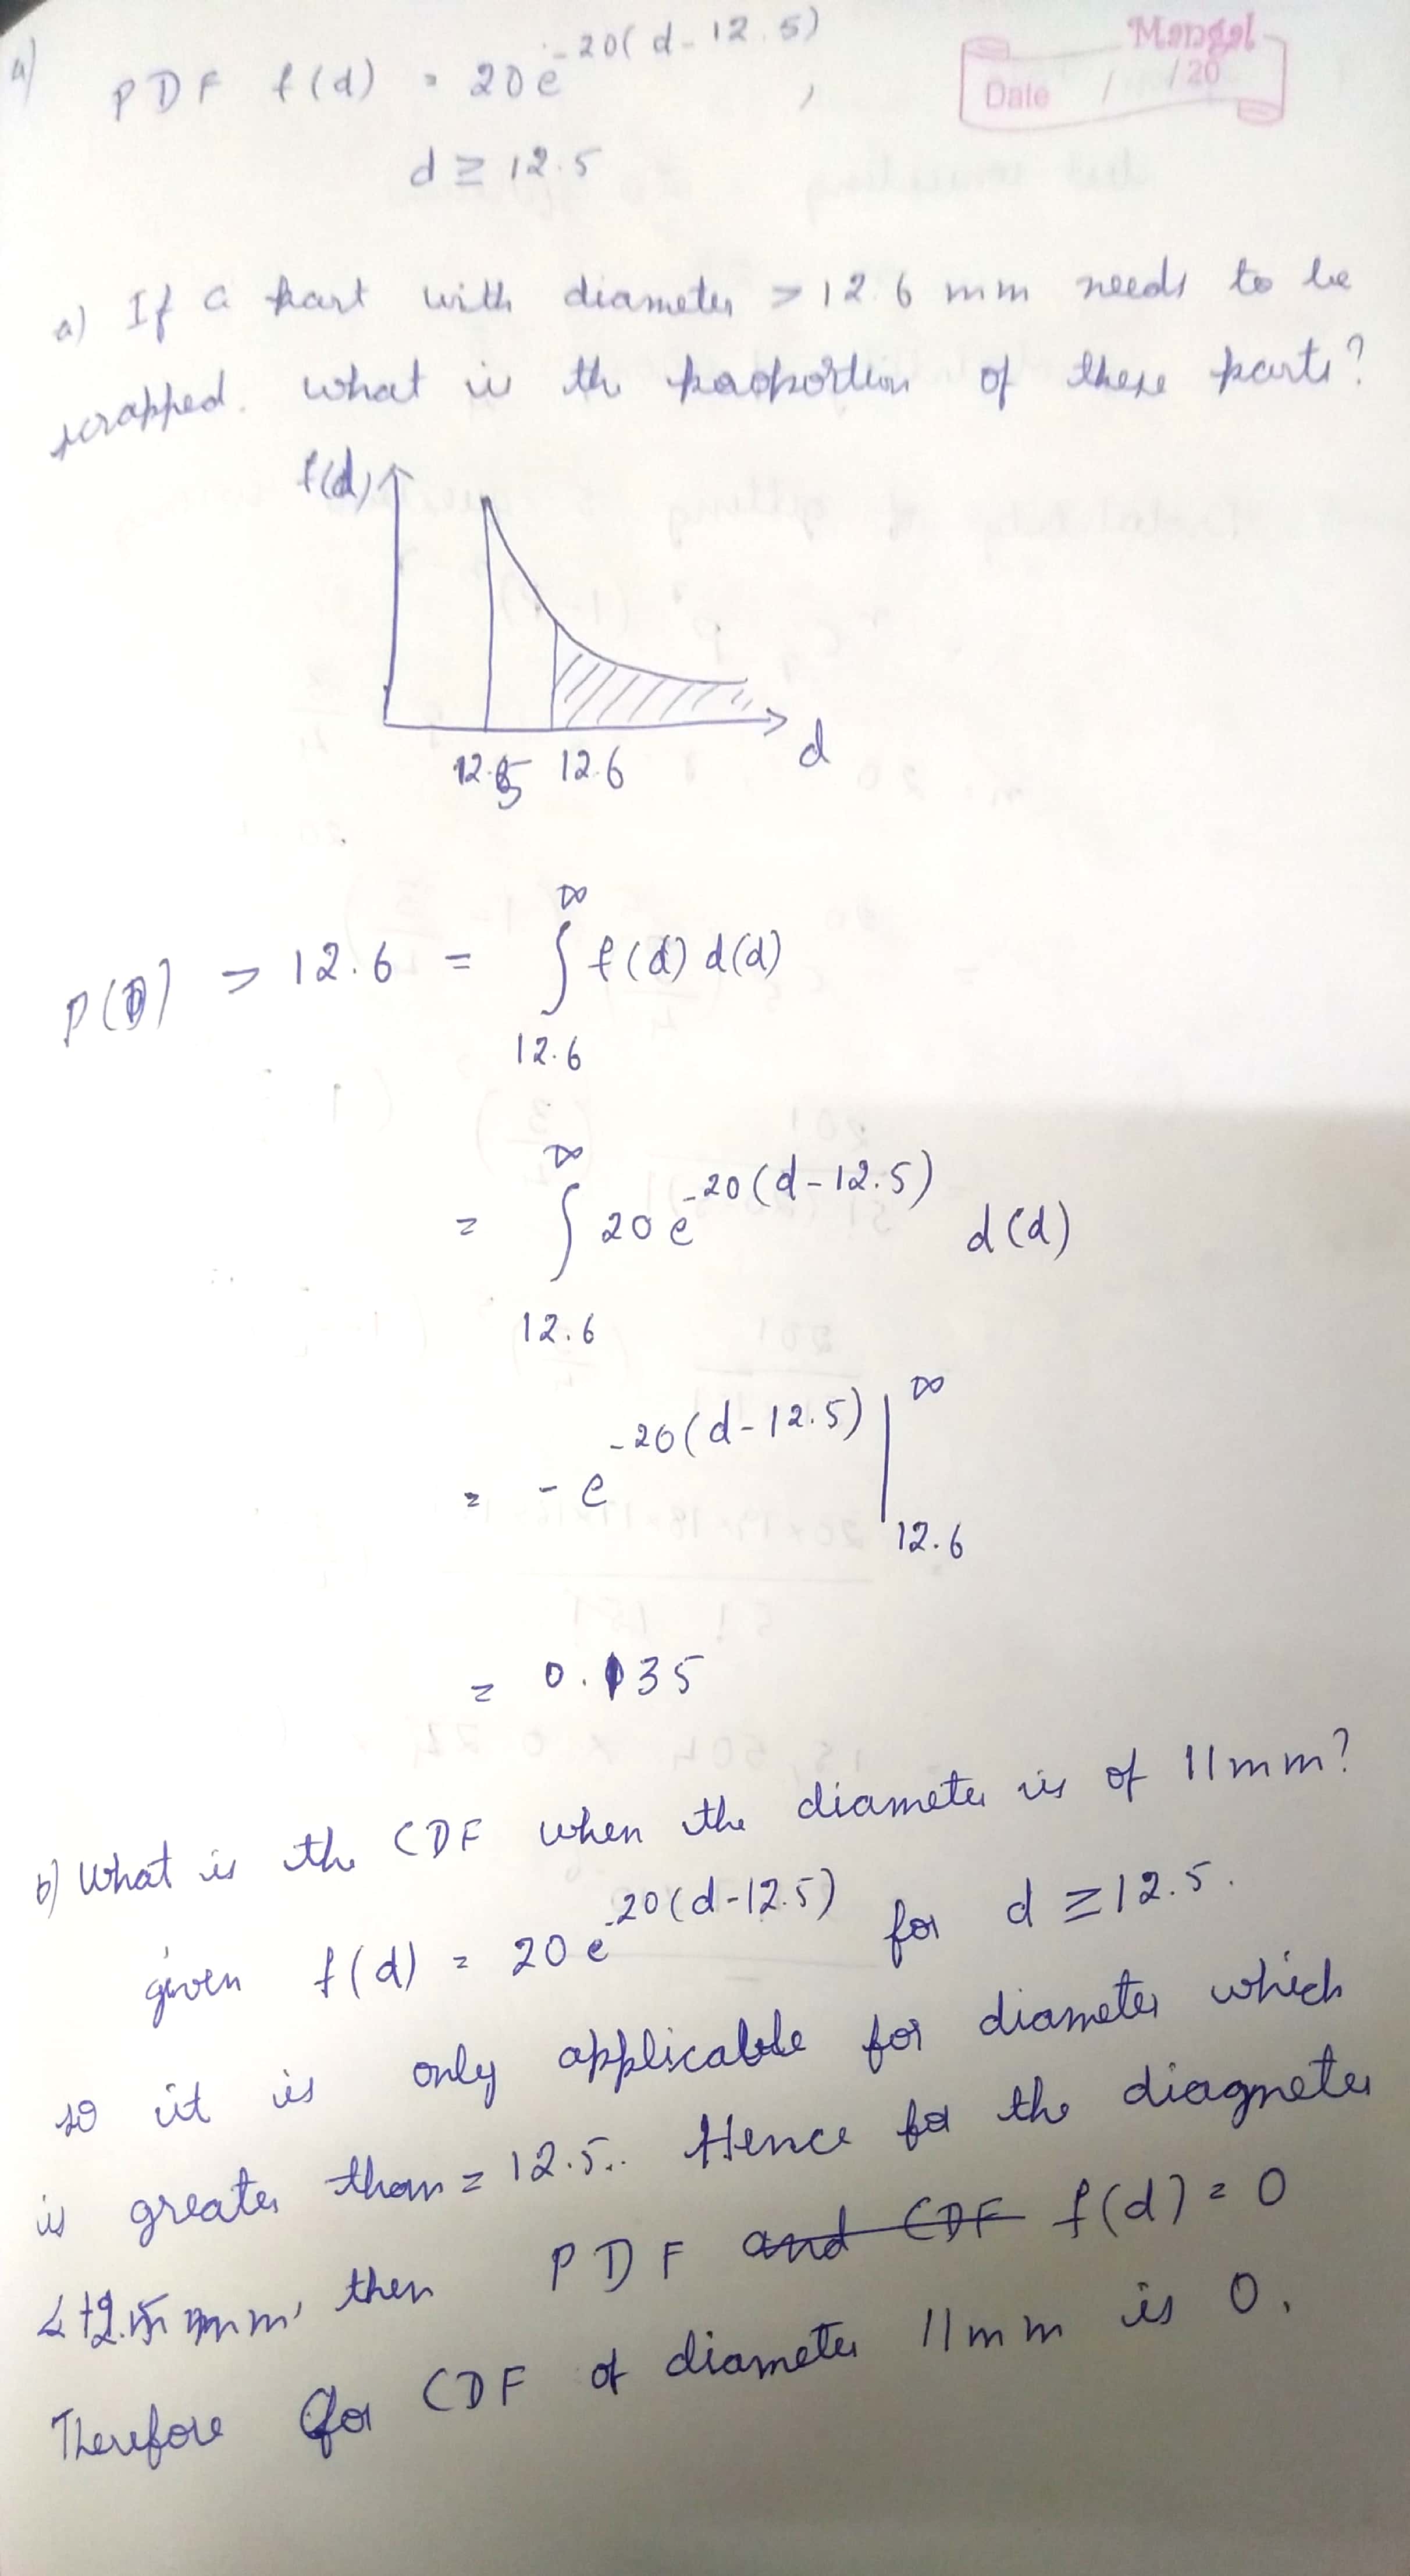 4)
PDF f(d) = 20e^-20(d-12.5),
d ≥ 12.5
Mangal
Date / /20
a) If a part with diameter > 12.6 mm needs to be
scrapped. what is the proportion of these parts?
f(d)
12.5 12.6 d
P(D) > 12.6 = ∫_12.6^∞ f(d) d(d)
= ∫_12.6^∞ 20e^-20(d-12.5) d(d)
= -e^-20(d-12.5) |_12.6^∞
= 0.135
b) What is the CDF when the diameter is of 11mm?
given f(d) = 20e^-20(d-12.5) for d ≥ 12.5.
so it is only applicable for diameter which
is greater than = 12.5.. Hence for the diagneter
<12.5 mm, then PDF and CDF f(d) = 0
Therefore for CDF of diameter 11mm is 0.